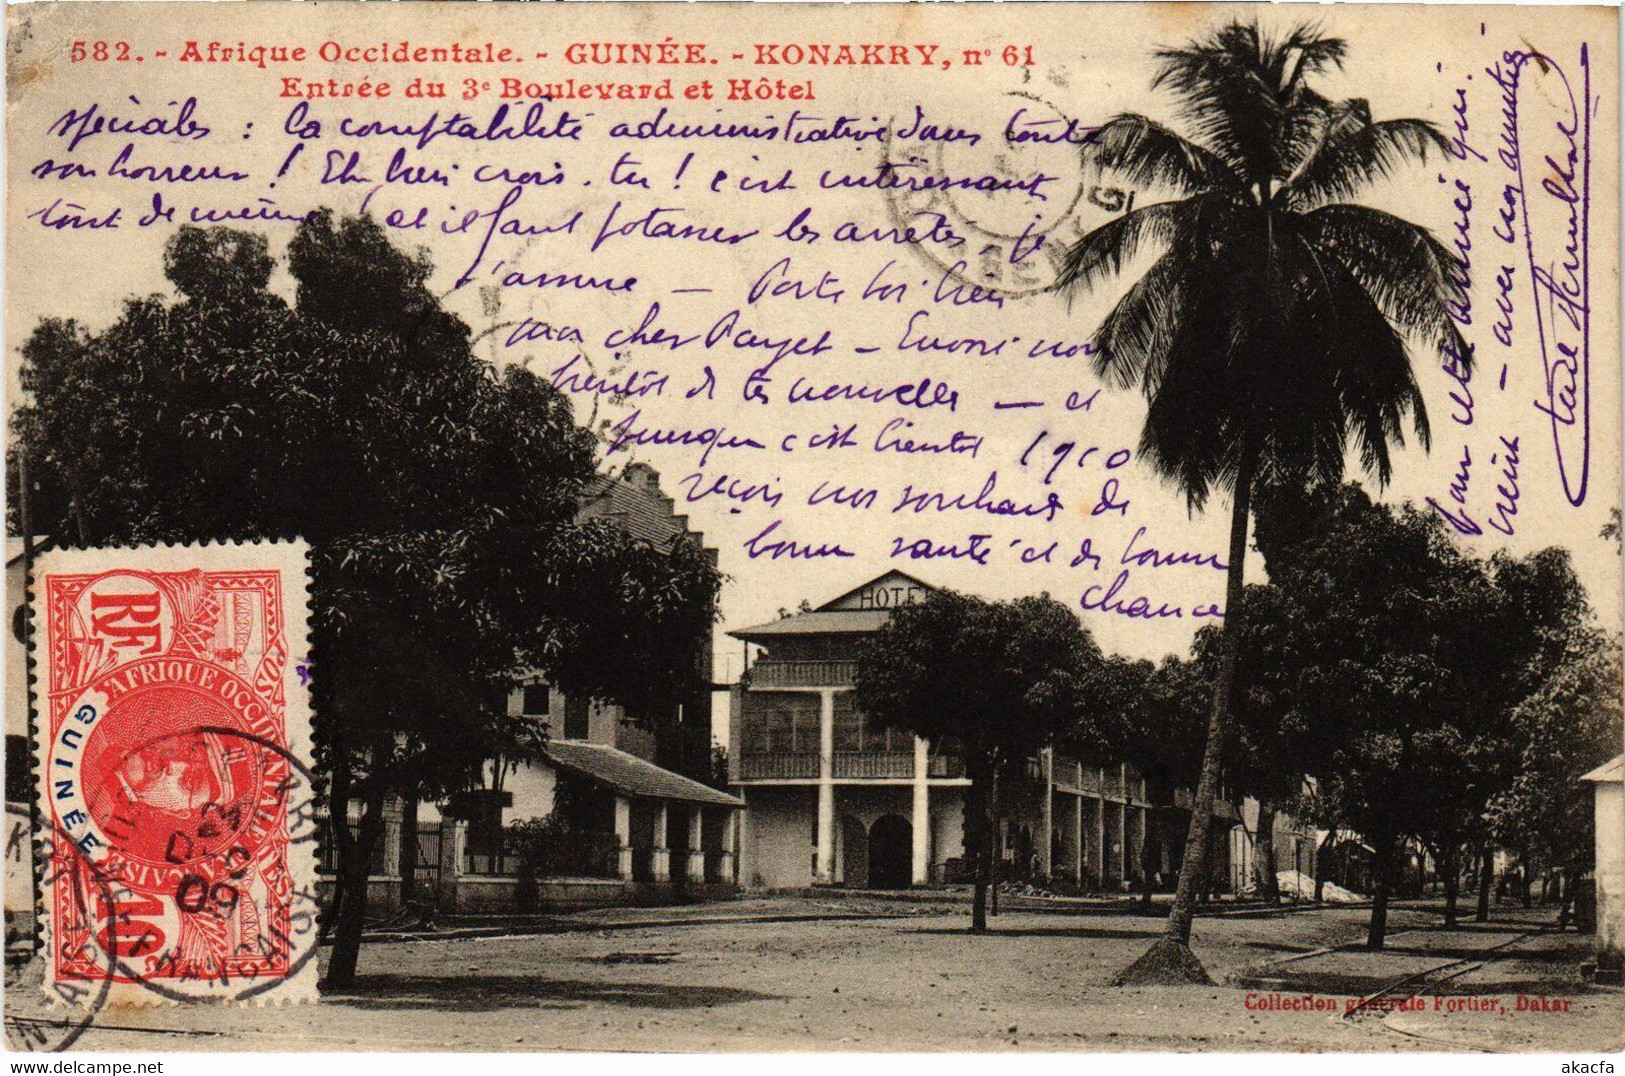 582. - Afrique Occidentale. - GUINÉE. - KONAKRY, n° 61
Entrée du 3e Boulevard et Hôtel
spéciales : la comptabilité administrative dans toute
son horreur ! Eh bien crois-tu ! c'est intéressant
tout de même ! et il faut potasser les arrêtés, je
t'assure — Porte toi bien
mon cher Payet — Envoie nous
bientôt de tes nouvelles — et
puisque c'est bientôt 1910
reçois nos souhaits de
bonne santé et de bonne
chance
pour cette année qui
vient — avec nos amitiés
HOTEL
RF
AFRIQUE OCCIDENTALE
FRANÇAISE
GUINÉE
10
Collection générale Fortier, Dakar